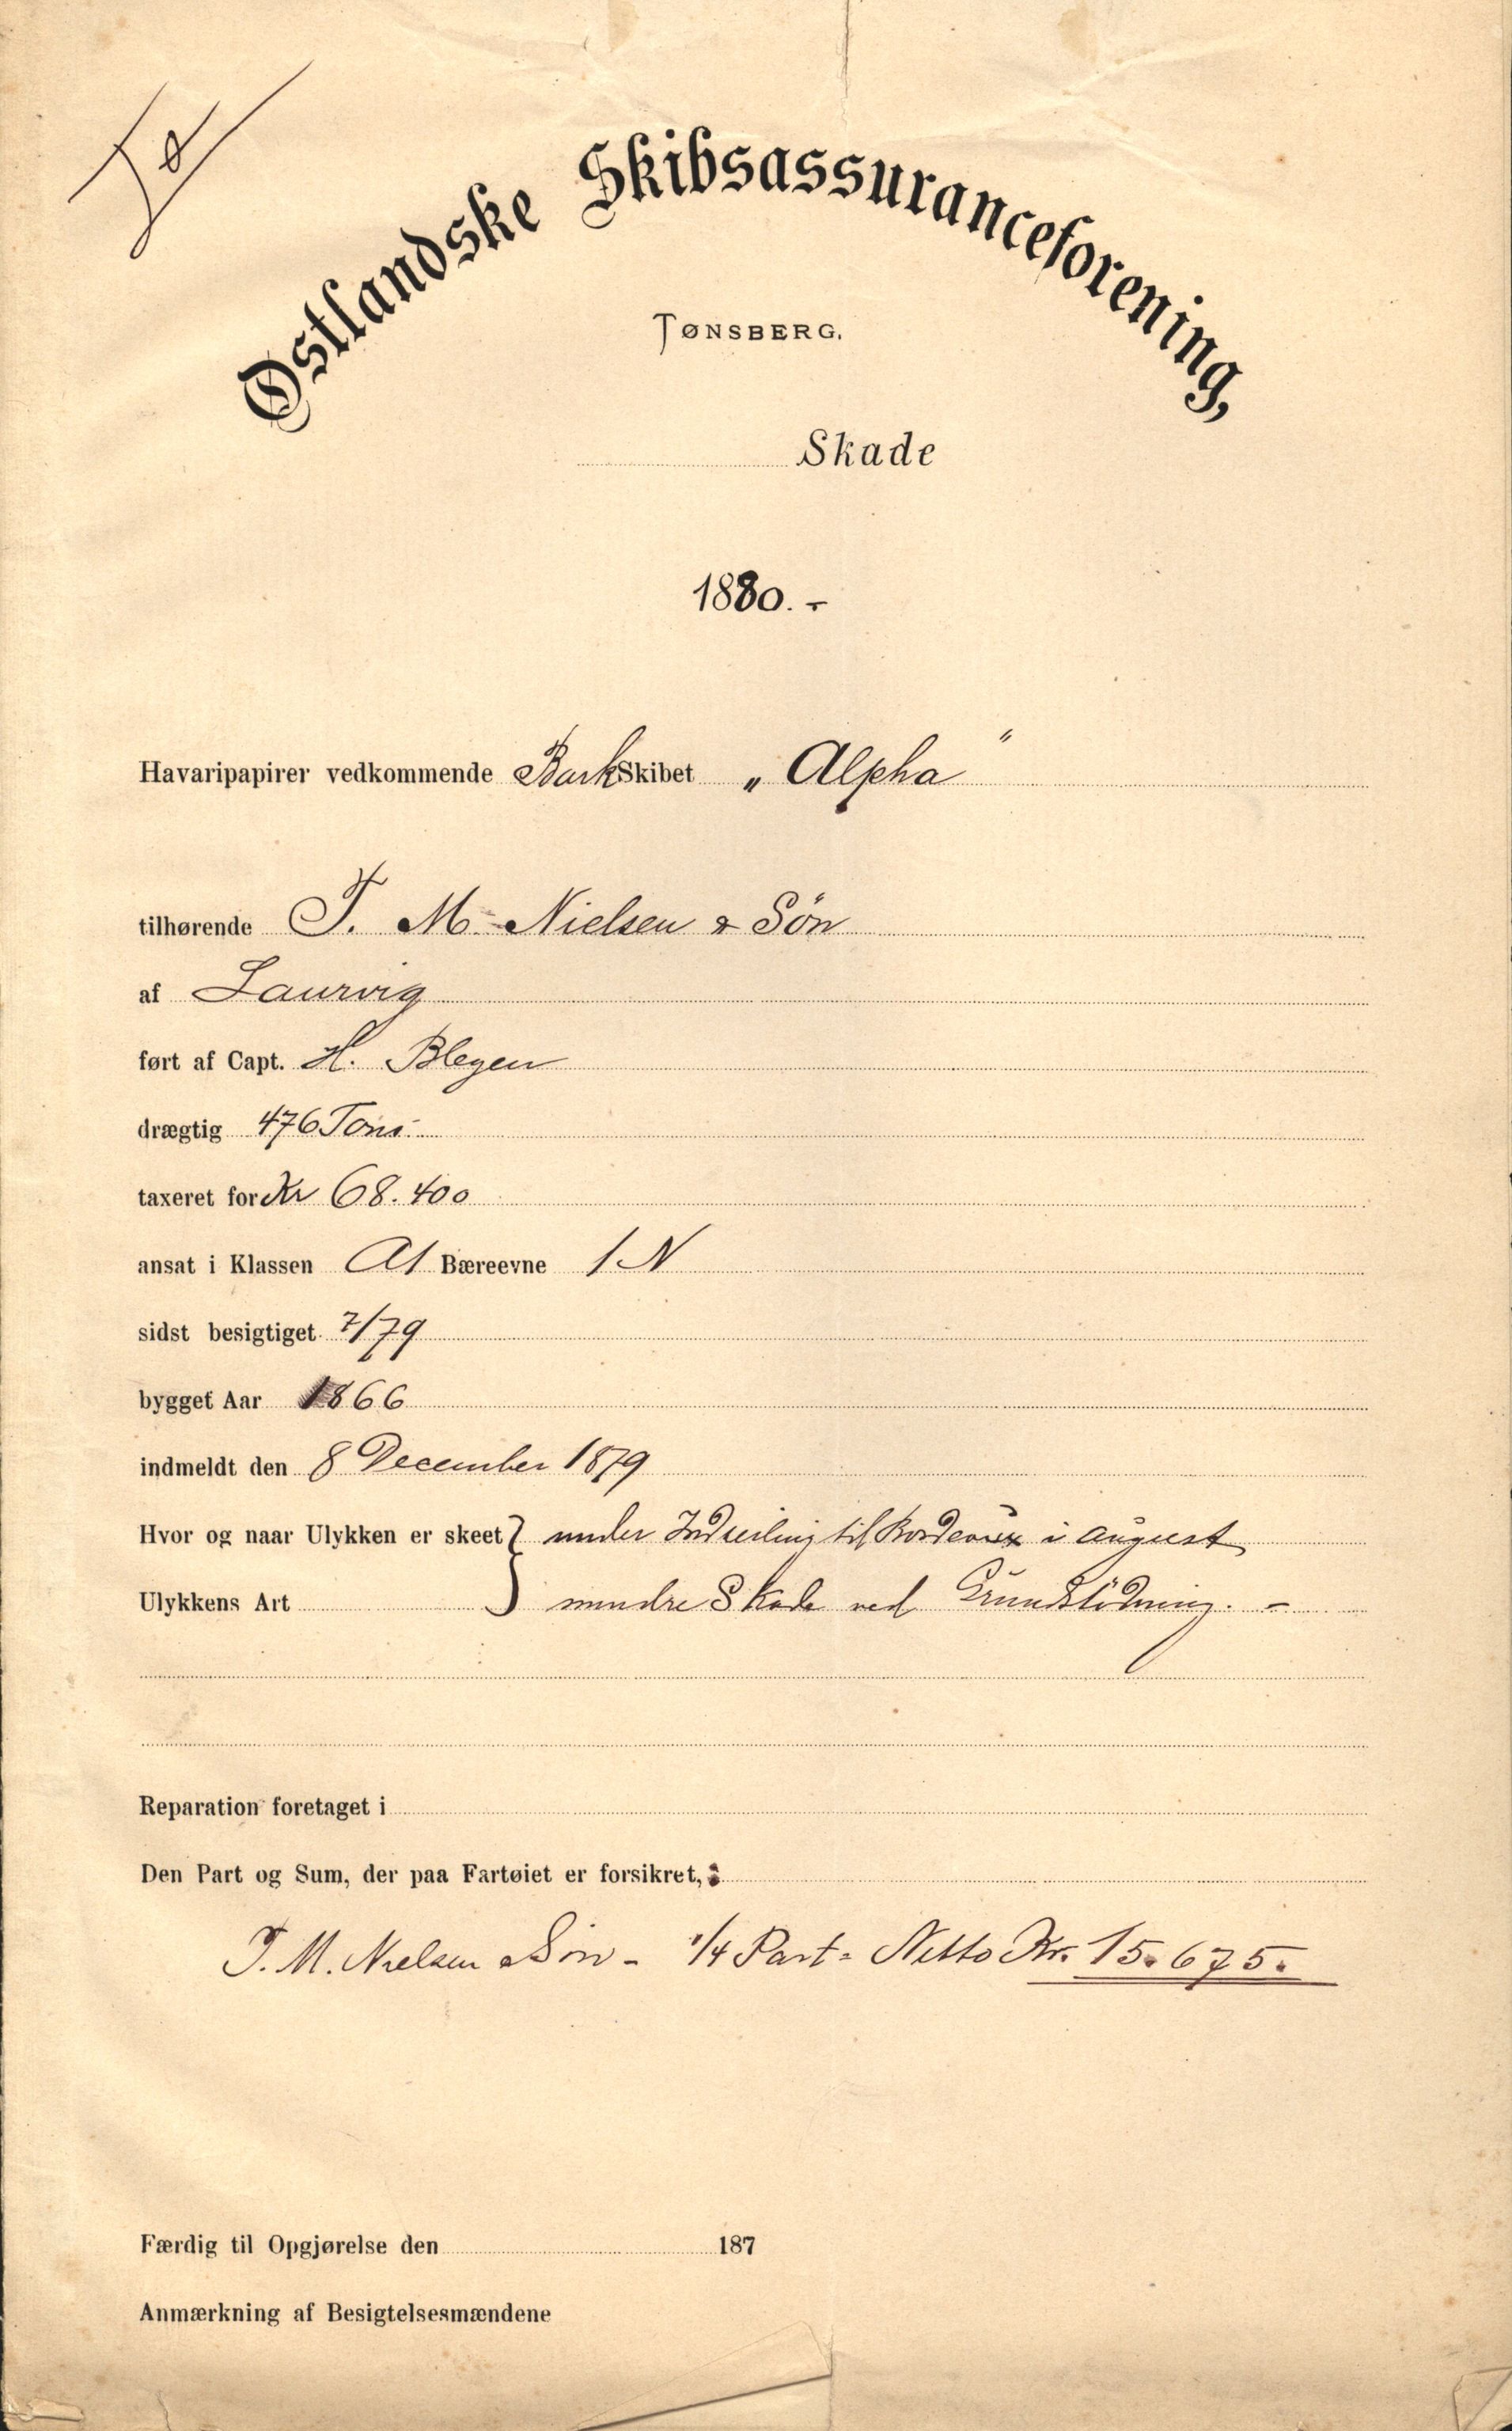 Østlandske Skibsassuranceforening,
TØNSBERG.
Skade
1880. -
Havaripapirer vedkommende Bark Skibet „Alpha"
tilhørende T. M. Nielsen & Søn
af Laurvig
ført af Capt. H. Blegen
drægtig 476 Tons
taxeret for Kr 68.400
ansat i Klassen A1 Bæreevne 1 N
sidst besigtiget 7/79
bygget Aar 1866
indmeldt den 8 December 1879
Hvor og naar Ulykken er skeet } under Indseiling til Bordeaux i August
Ulykkens Art mindre Skade ved Grundstødning. -
Reparation foretaget i
Den Part og Sum, der paa Fartøiet er forsikret, :
T. M. Nielsen & Søn - 1/4 Part = Netto Kr. 15.675.
Færdig til Opgjørelse den 187
Anmærkning af Besigtelsesmændene